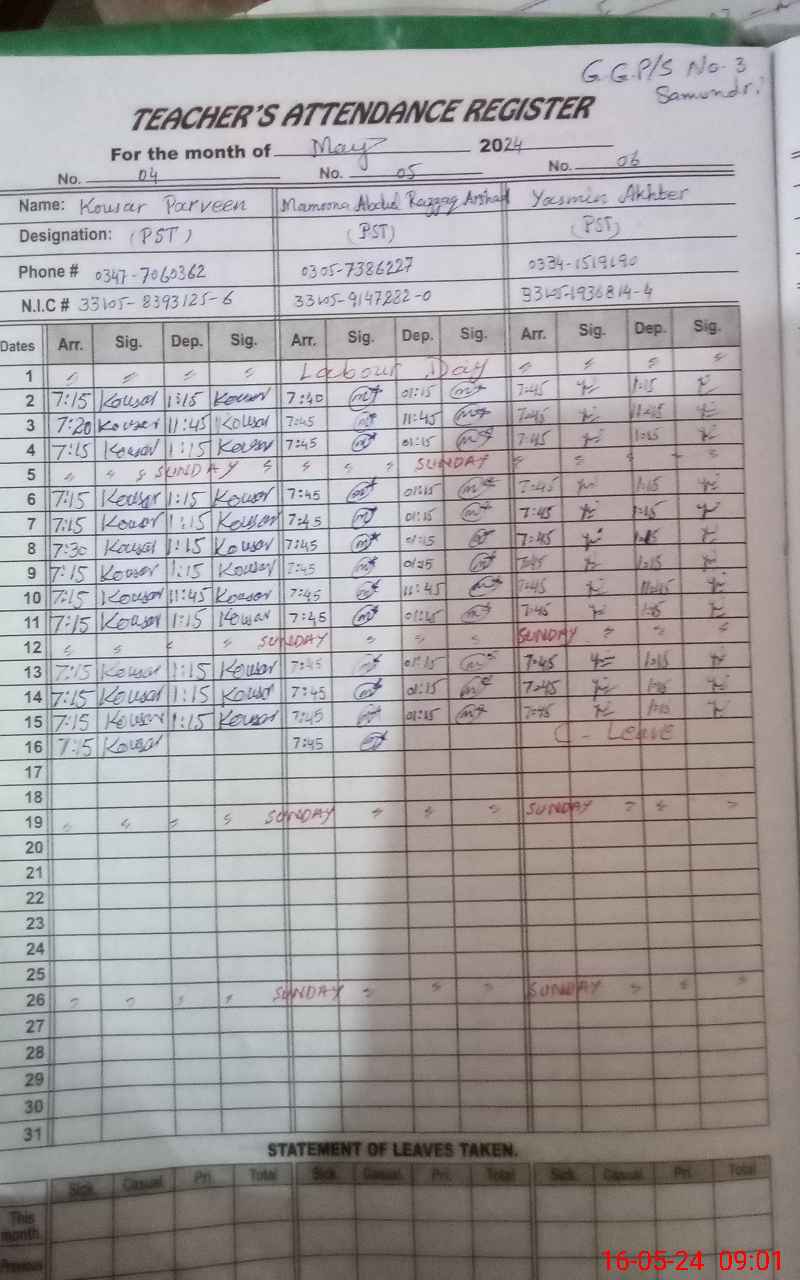 G.G.P/S No. 3
Samundri
TEACHER'S ATTENDANCE REGISTER
For the month of May 2024
No. 04 No. 05 No. 06
Name: Kousar Parveen Mamoona Abdul Razzaq Arshad Yasmin Akhter
Designation: (PST) (PST) (PST)
Phone # 0347-7060362 0305-7386227 0334-1519190
N.I.C # 33105-8393125-6 33105-9147282-0 33105-1936814-4
Dates Arr. Sig. Dep. Sig. Arr. Sig. Dep. Sig. Arr. Sig. Dep. Sig.
1 Labour Day
2 7:15 Kousar 1:15 Kousar 7:40 01:15 7:45 1:15
3 7:20 Kousar 11:45 Kousar 7:45 11:45 7:45 11:45
4 7:15 Kousar 1:15 Kousar 7:45 01:15 7:45 1:15
5 SUNDAY SUNDAY
6 7:15 Kousar 1:15 Kousar 7:45 01:15 7:45 1:15
7 7:15 Kousar 1:15 Kousar 7:45 01:15 7:45 1:15
8 7:30 Kousar 1:15 Kousar 7:45 01:15 7:45 1:15
9 7:15 Kousar 1:15 Kousar 7:45 01:15 7:45 1:15
10 7:15 Kousar 11:45 Kousar 7:45 11:45 7:45 11:45
11 7:15 Kousar 1:15 Kousar 7:45 01:15 7:45 1:15
12 SUNDAY SUNDAY
13 7:15 Kousar 1:15 Kousar 7:45 01:15 7:45 1:15
14 7:15 Kousar 1:15 Kousar 7:45 01:15 7:45 1:15
15 7:15 Kousar 1:15 Kousar 7:45 01:15 7:45 1:15
16 7:15 Kousar 7:45 C - LEAVE
17
18
19 SUNDAY SUNDAY
20
21
22
23
24
25
26 SUNDAY SUNDAY
27
28
29
30
31
STATEMENT OF LEAVES TAKEN.
Sick Casual Pri. Total Sick Casual Pri. Total Sick Casual Pri. Total
This month
Previous
16-05-24 09:01